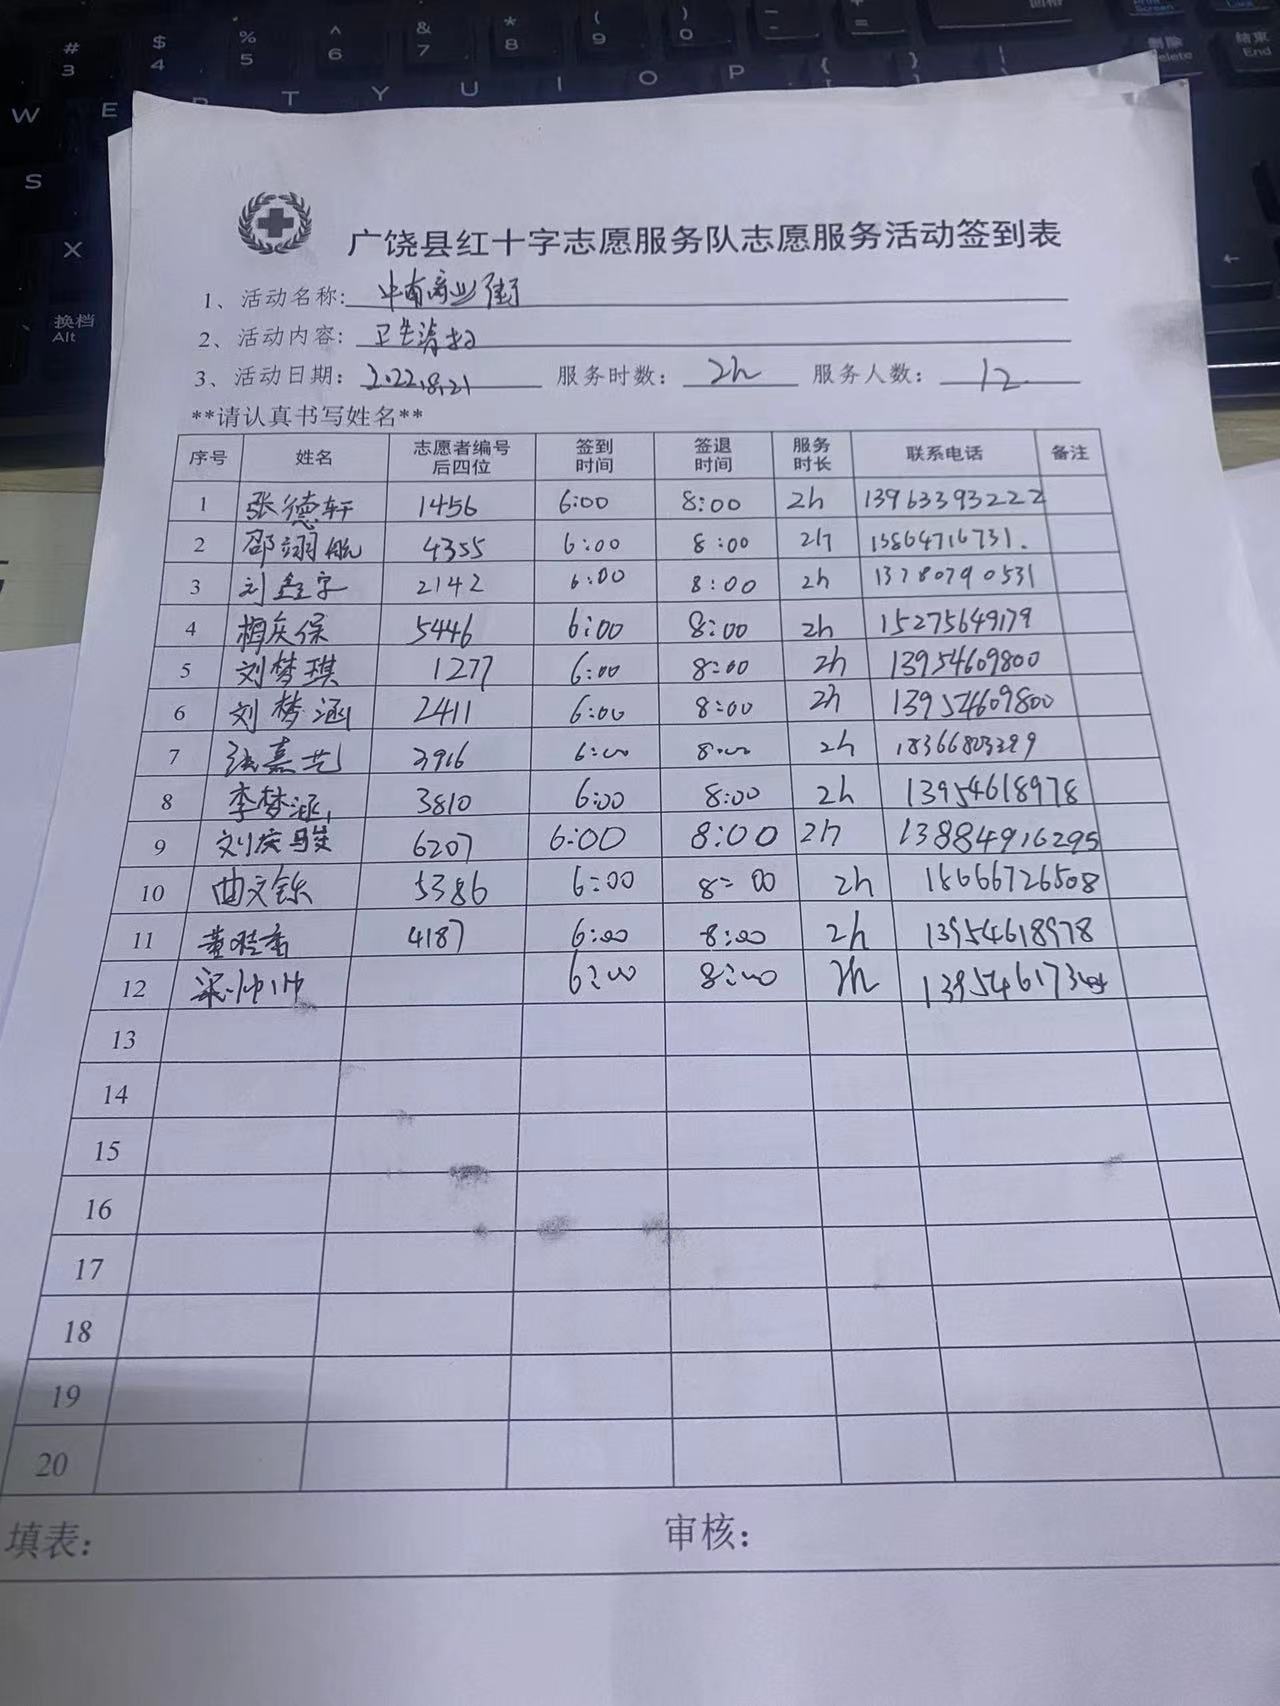 # 3 $ 4 % 5 ^ 6 & 7 * 8 ( 9 ) 0
W E T Y U I O P
删除 Delete 结束 End
S
X
换档 Alt
广饶县红十字志愿服务队志愿服务活动签到表
1、活动名称: 中南商业街
2、活动内容: 卫生清扫
3、活动日期: 2022.8.21 服务时数: 2h 服务人数: 12
**请认真书写姓名**
序号 姓名 志愿者编号后四位 签到时间 签退时间 服务时长 联系电话 备注
1 张德轩 1456 6:00 8:00 2h 13963393222
2 邵翊航 4355 6:00 8:00 2h 13864716731.
3 刘鑫宇 2142 6:00 8:00 2h 13780790531
4 相庆保 5446 6:00 8:00 2h 15275649179
5 刘梦琪 1277 6:00 8:00 2h 13954609800
6 刘梦涵 2411 6:00 8:00 2h 13954609800
7 张嘉艺 3916 6:00 8:00 2h
8 李梦涵 3810 6:00 8:00 2h 13954618978
9 刘庆骏 6207 6:00 8:00 2h 13884916295
10 曲文铄 5386 6:00 8:00 2h 18666726508
11 4187 6:00 8:00 2h 13954618978
12 梁帅帅 6:00 8:00 2h
13
14
15
16
17
18
19
20
填表: 审核: